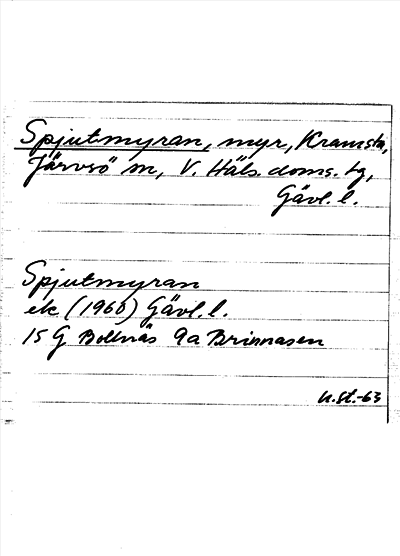 Spjutmyran, myr, Kramsta,
Järvsö sn, V. Häls. doms. tg,
Gävl. l.
Spjutmyran
ek (1960) Gävl. l.
15 G Bollnäs 9a Brinnåsen
u.st.-63